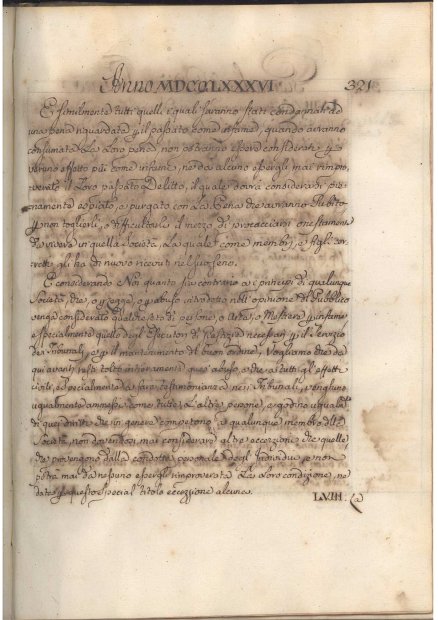 Anno MDCCLXXXVI 321
E similmente tutti quelli i quali saranno stati condannati ad
una pena riguardata p il passato come infame, quando avranno
consumata La Loro pena non potranno essere considerati p
veruno effetto più come infami, ne da alcuno essergli mai rimpro
verato il Loro passato Delitto, il quale dovrà considerarsi pie
namente espiato, e purgato con La Pena che avranno subito
p non toglierli, o difficultarli il mezzo di procacciarsi onestamente
da vivere in quella Società, La quale come membri, e figli cor
retti gli ha di nuovo ricevuti nel suo seno.
E considerando Noi quanto sia contrario a i principi di qualunque
Società, che, o p Legge, o p abuso introdotto nell'opinione del Pubblico
venga considerato della sorte di persone, o Arte, o Mestiere p infame
e specialmente quello degli Esecutori di Giustizia necessari p il servizio
dei Tribunali, e p il mantenimento del buon ordine, Vogliamo che da
qui avanti resti tolto intieramente quest'abuso, e che a tutti gli effetti
civili, e specialmente a fare testimonianza nei Tribunali, venghino
ugualmente ammessi come tutte L'altre persone, e godino ugualmente
di quei diritti che in genere competono a qualunque membro della
Società, non dovendosi mai considerare altre eccezzioni che quelle
che provengono dalla condotta personale degl' Individui, e non
potrà mai da nessuno essergli rimproverata La Loro condizione, ne
data p questo special titolo eccezzione alcuna.
LVIII: La